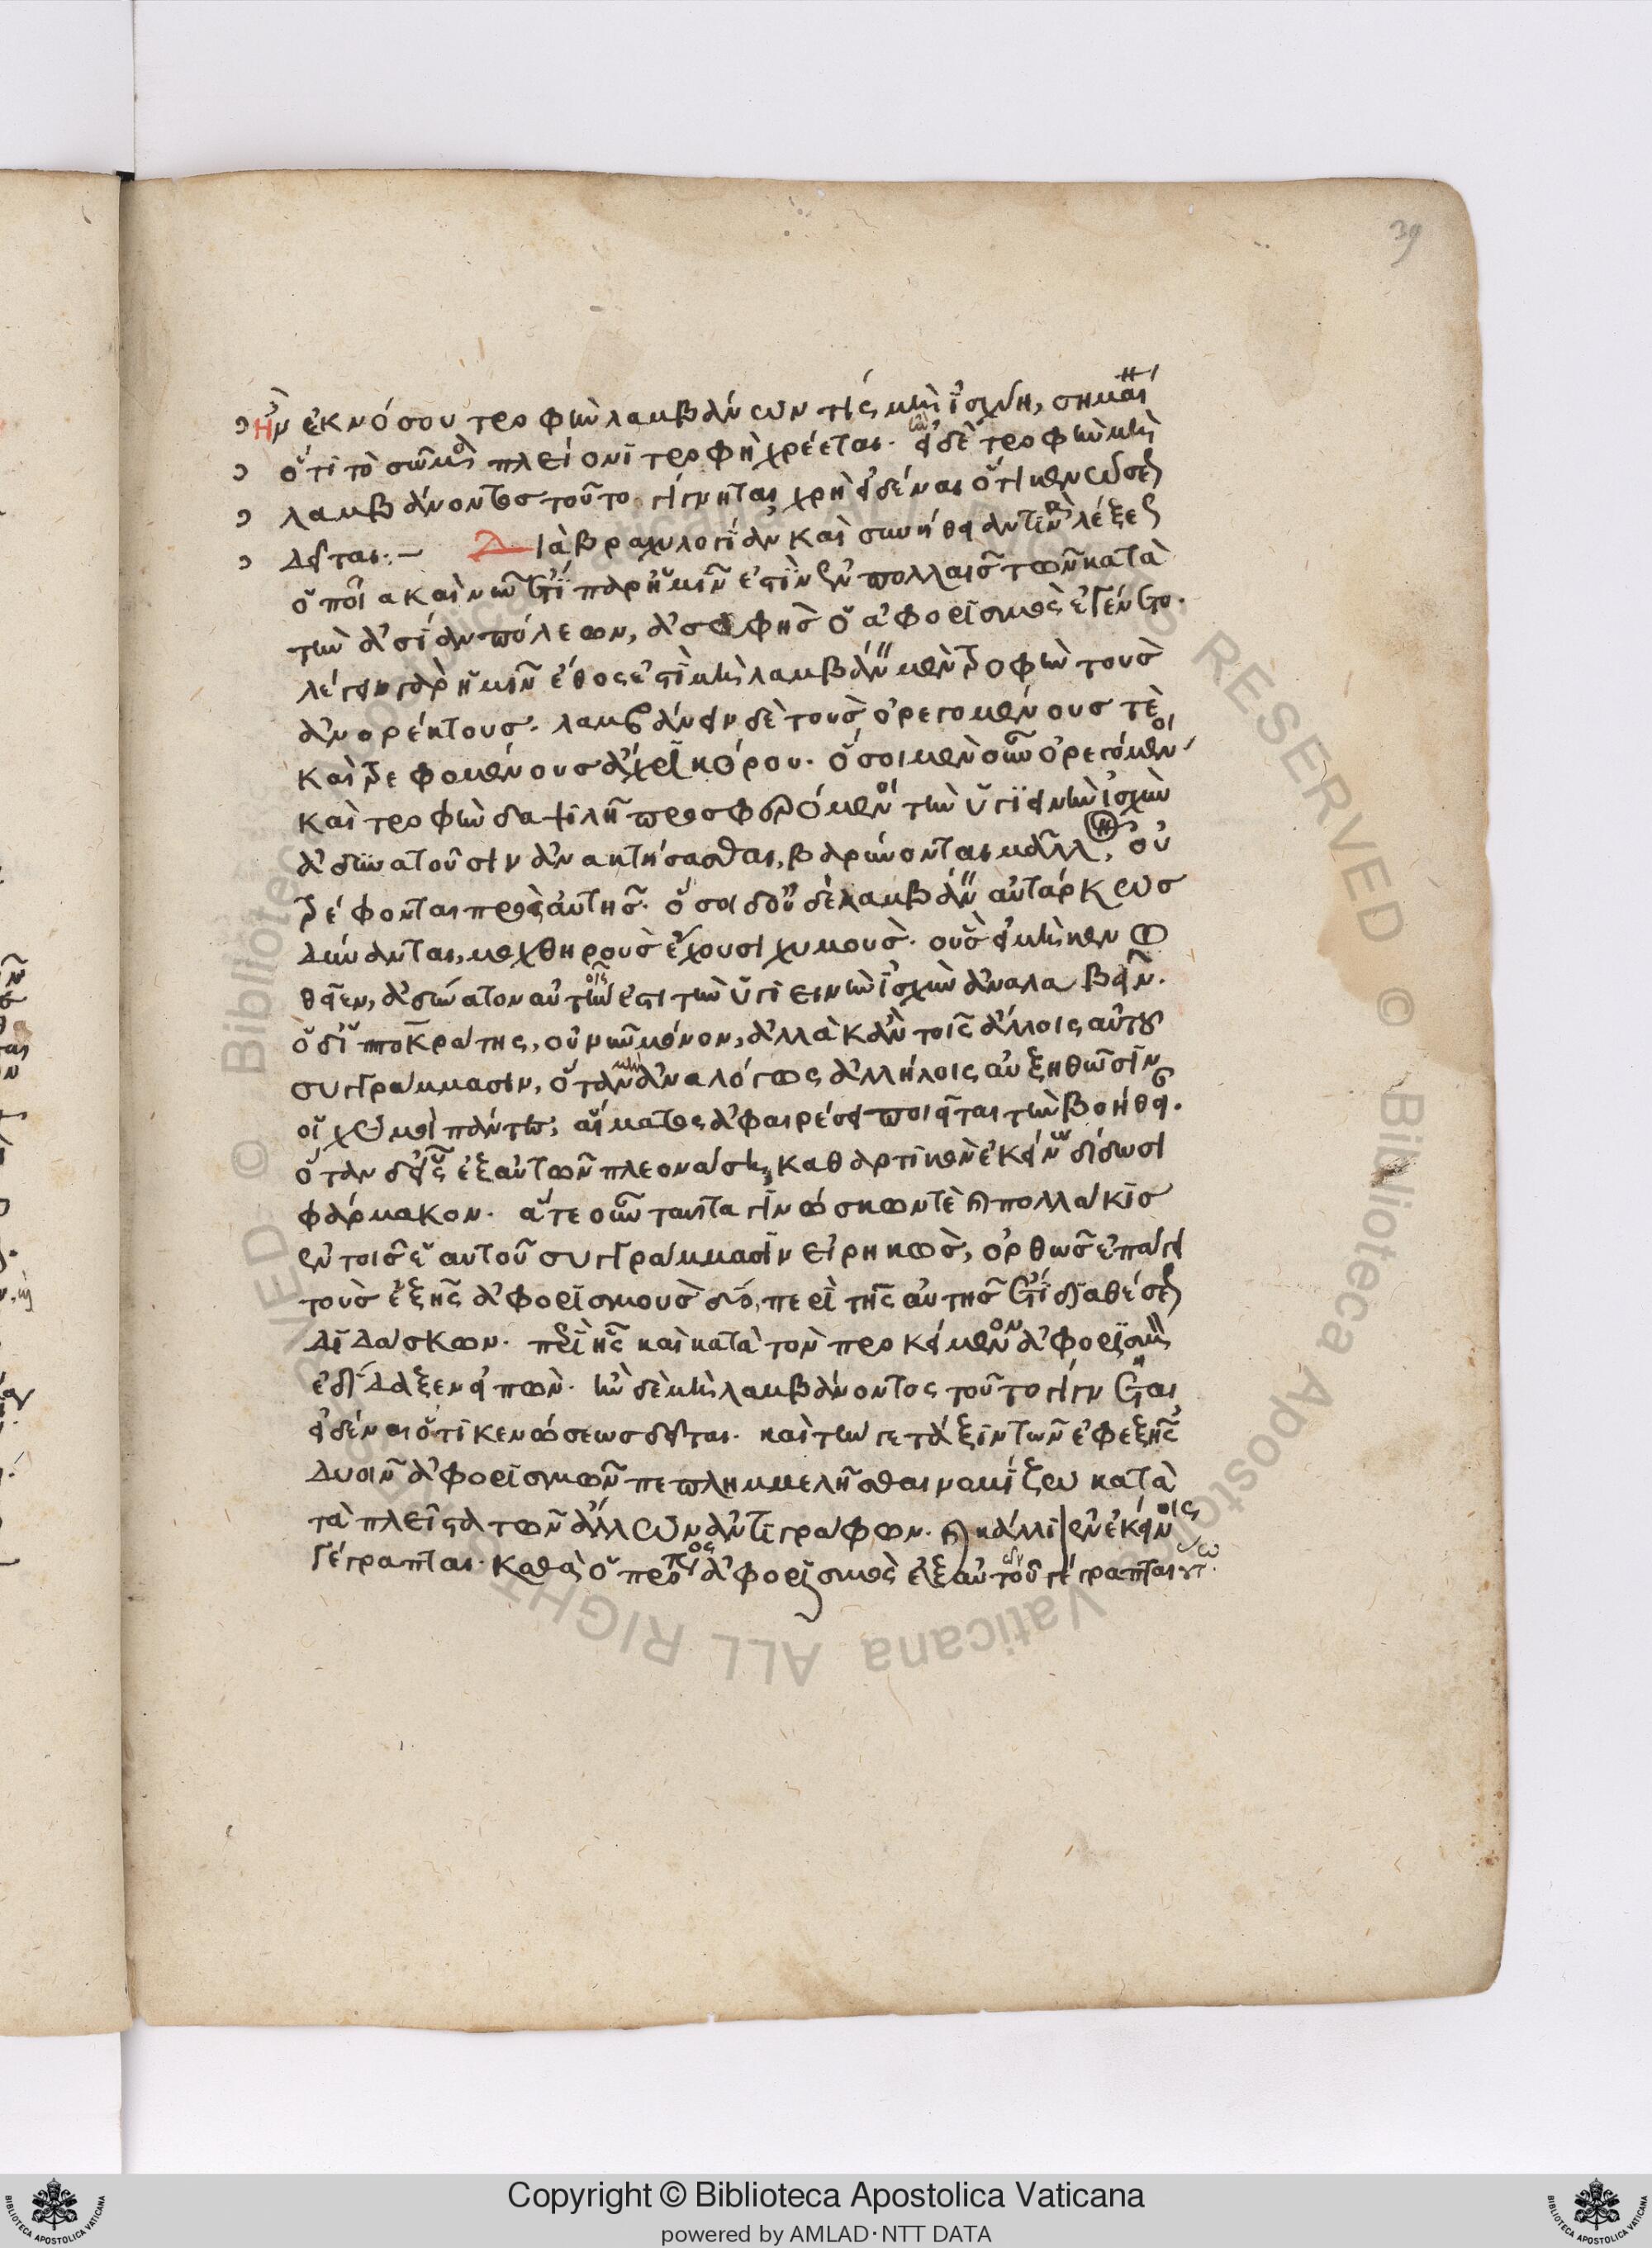 39
Ἢν ἐκ νόσου τροφὴν λαμβάνων τίς μὴ ἰσχύη, σημαίνει
ὅτι τὸ σῶμα πλείονι τροφῆ χρέεται. εἰ δὲ τροφὴν μὴ
λαμβάνοντος τοῦτο γίγνηται χρὴ εἰδέναι ὅτι κενώσεως
δεῖται:~ Διὰ βραχυλογίαν καὶ συνήθειάν τινα λέξεως
ὁποία καὶ νῦν ἔτι παρ' ἡμῖν ἐστὶν ἐν πολλαῖς τῶν κατὰ
τὴν ἀσίαν πόλεων, ἀσαφὴς ὁ ἀφορισμὸς ἐγένετο.
λέγειν γὰρ ἡμῖν ἔθος ἐστὶ μὴ λαμβάνειν μὲν τροφὴν τοὺς
ἀνορέκτους. λαμβάνειν δὲ τοὺς ὀρεγομένους τὲ
καὶ τρεφομένους ἄχρι κόρου. ὅσοι μὲν οὖν ὀρεγόμενοι
καὶ τροφὴν δαψιλῆ προσφερόμενοι τὴν ὑγιεινὴν ἰσχὺν
ἀδυνατοῦσιν ἀνακτήσασθαι, βαρύνονται μᾶλλον ἢ οὐ
τρέφονται πρὸς αὐτῆς. ὅσοι δ' οὐδὲ λαμβάνειν αὐτάρκως
δύνανται, μοχθηροὺς ἔχουσι χυμούς. οὓς εἰ μὴ κενω
θεῖεν, ἀδύνατον αὐτοῖς ἐστι τὴν ὑγιεινὴν ἰσχὺν ἀναλαβεῖν.
ὁ δ' ἱπποκράτης, οὐ νῦν μόνον, ἀλλὰ κἀν τοῖς ἄλλοις αὐτοῦ
συγγράμμασιν, ὅταν μὲν ἀναλόγως ἀλλήλοις αὐξηθῶσιν
οἱ χυμοὶ πάντες, αἵματος ἀφαιρέσει ποιεῖται τὴν βοήθειαν.
ὅταν δ' εἷς ἐξ αὐτῶν πλεονάση, καθαρτικὸν ἐκείνου δίδωσι
φάρμακον. ἅτε οὖν ταῦτα γινώσκων τὲ καὶ πολλάκις
ἐν τοῖς ἑαυτοῦ συγγράμμασιν εἰρηκὼς, ὀρθῶς ἐπάγει
τοὺς ἑξῆς ἀφορισμοὺς δύο, περὶ τῆς αὐτῆς ἔτι διαθέσεως
διδάσκων. περὶ ἧς καὶ κατὰ τὸν προκείμενον ἀφορισμὸν
ἐδίδαξεν εἰπών. ἢν δὲ μὴ λαμβάνοντος τοῦτο γίγνηται
εἰδέναι ὅτι κενώσεως δεῖται. καὶ τήν γε τάξιν τῶν ἐφεξῆς
δυοῖν ἀφορισμῶν πεπλημμελῆσθαι νομίζω κατὰ
τὰ πλεῖστα τῶν ἄλλων ἀντιγράφων. καὶ κάλλιον ἐν ἐκείνοις
γέγραπται. καθὰ ὁ πρῶτος ἀφορισμὸς ἐξ αὐτῶν γέγραπται οὕτω.
Copyright © Biblioteca Apostolica Vaticana
powered by AMLAD·NTT DATA